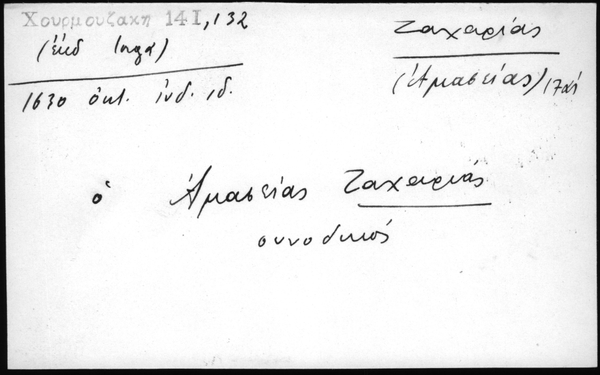 Χουρμουζακη 14I, 132
(ἐκδ Ιορga)
1630 ὀκτ. ἰνδ. ιδ.
Ζαχαρίας
(Ἀμασείας) 17ος
ὁ Ἀμασείας Ζαχαρίας
συνοδικός